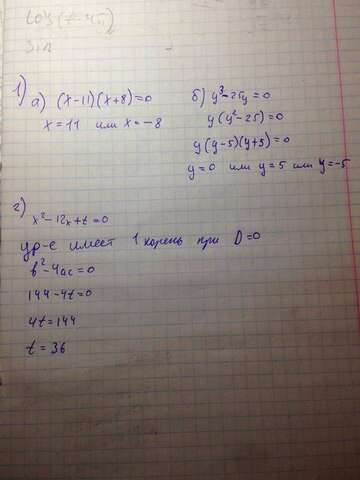 1)
а) (x-11)(x+8)=0
x=11 или x=-8
б) y³-25y=0
y(y²-25)=0
y(y-5)(y+5)=0
y=0 или y=5 или y=-5
2)
x²-12x+t=0
ур-е имеет 1 корень при D=0
b²-4ac=0
144-4t=0
4t=144
t=36